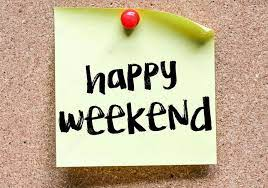 happy
weekend